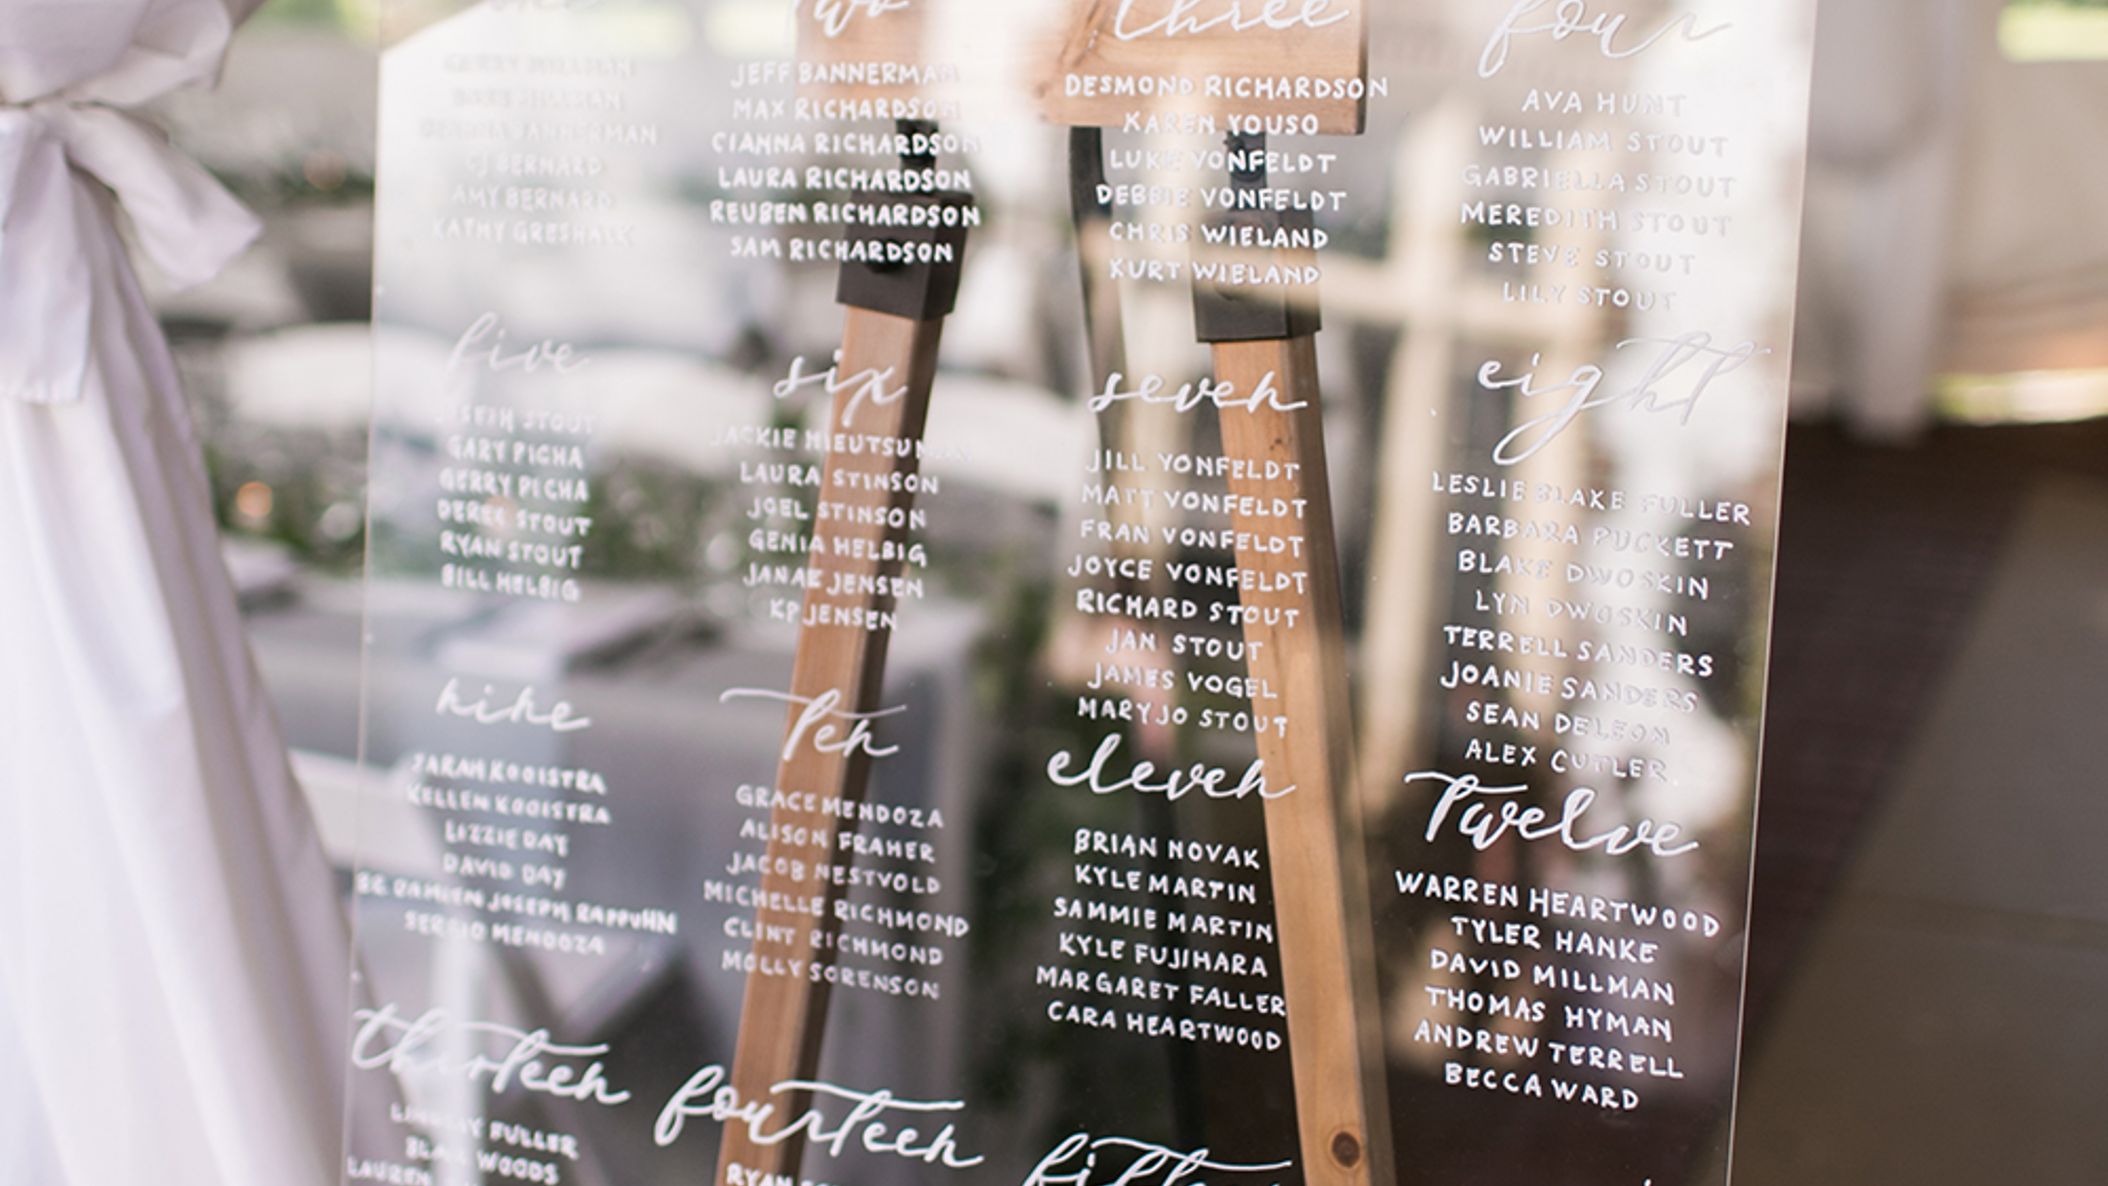 two
three
four
JEFF BANNERMAN
MAX RICHARDSON
CIANNA RICHARDSON
LAURA RICHARDSON
REUBEN RICHARDSON
SAM RICHARDSON
DESMOND RICHARDSON
KAREN YOUSO
LUKE VONFELDT
DEBBIE VONFELDT
CHRIS WIELAND
KURT WIELAND
AVA HUNT
WILLIAM STOUT
GABRIELLA STOUT
MEREDITH STOUT
STEVE STOUT
LILY STOUT
BANNERMAN
CJ BERNARD
AMY BERNARD
KATHY
five
JOSEPH STOUT
GARY PICHA
GERRY PICHA
DEREK STOUT
RYAN STOUT
BILL HELBIG
six
JACKIE
LAURA STINSON
JOEL STINSON
GENIA HELBIG
JANAE JENSEN
KP JENSEN
seven
JILL VONFELDT
MATT VONFELDT
FRAN VONFELDT
JOYCE VONFELDT
RICHARD STOUT
JAN STOUT
JAMES VOGEL
MARY JO STOUT
eight
LESLIE BLAKE FULLER
BARBARA PUCKETT
BLAKE DWOSKIN
LYN DWOSKIN
TERRELL SANDERS
JOANIE SANDERS
SEAN DELEON
ALEX CUTLER
nine
SARAH KOOISTRA
KELLEN KOOISTRA
LIZZIE DAY
DAVID DAY
DAMIEN JOSEPH RAPPUHN
SERGIO MENDOZA
Ten
GRACE MENDOZA
ALISON FRAHER
JACOB NESTVOLD
MICHELLE RICHMOND
CLINT RICHMOND
MOLLY SORENSON
eleven
BRIAN NOVAK
KYLE MARTIN
SAMMIE MARTIN
KYLE FUJIHARA
MARGARET FALLER
CARA HEARTWOOD
Twelve
WARREN HEARTWOOD
TYLER HANKE
DAVID MILLMAN
THOMAS HYMAN
ANDREW TERRELL
BECCA WARD
thirteen
LINDSAY FULLER
WOODS
LAUREN
fourteen
RYAN